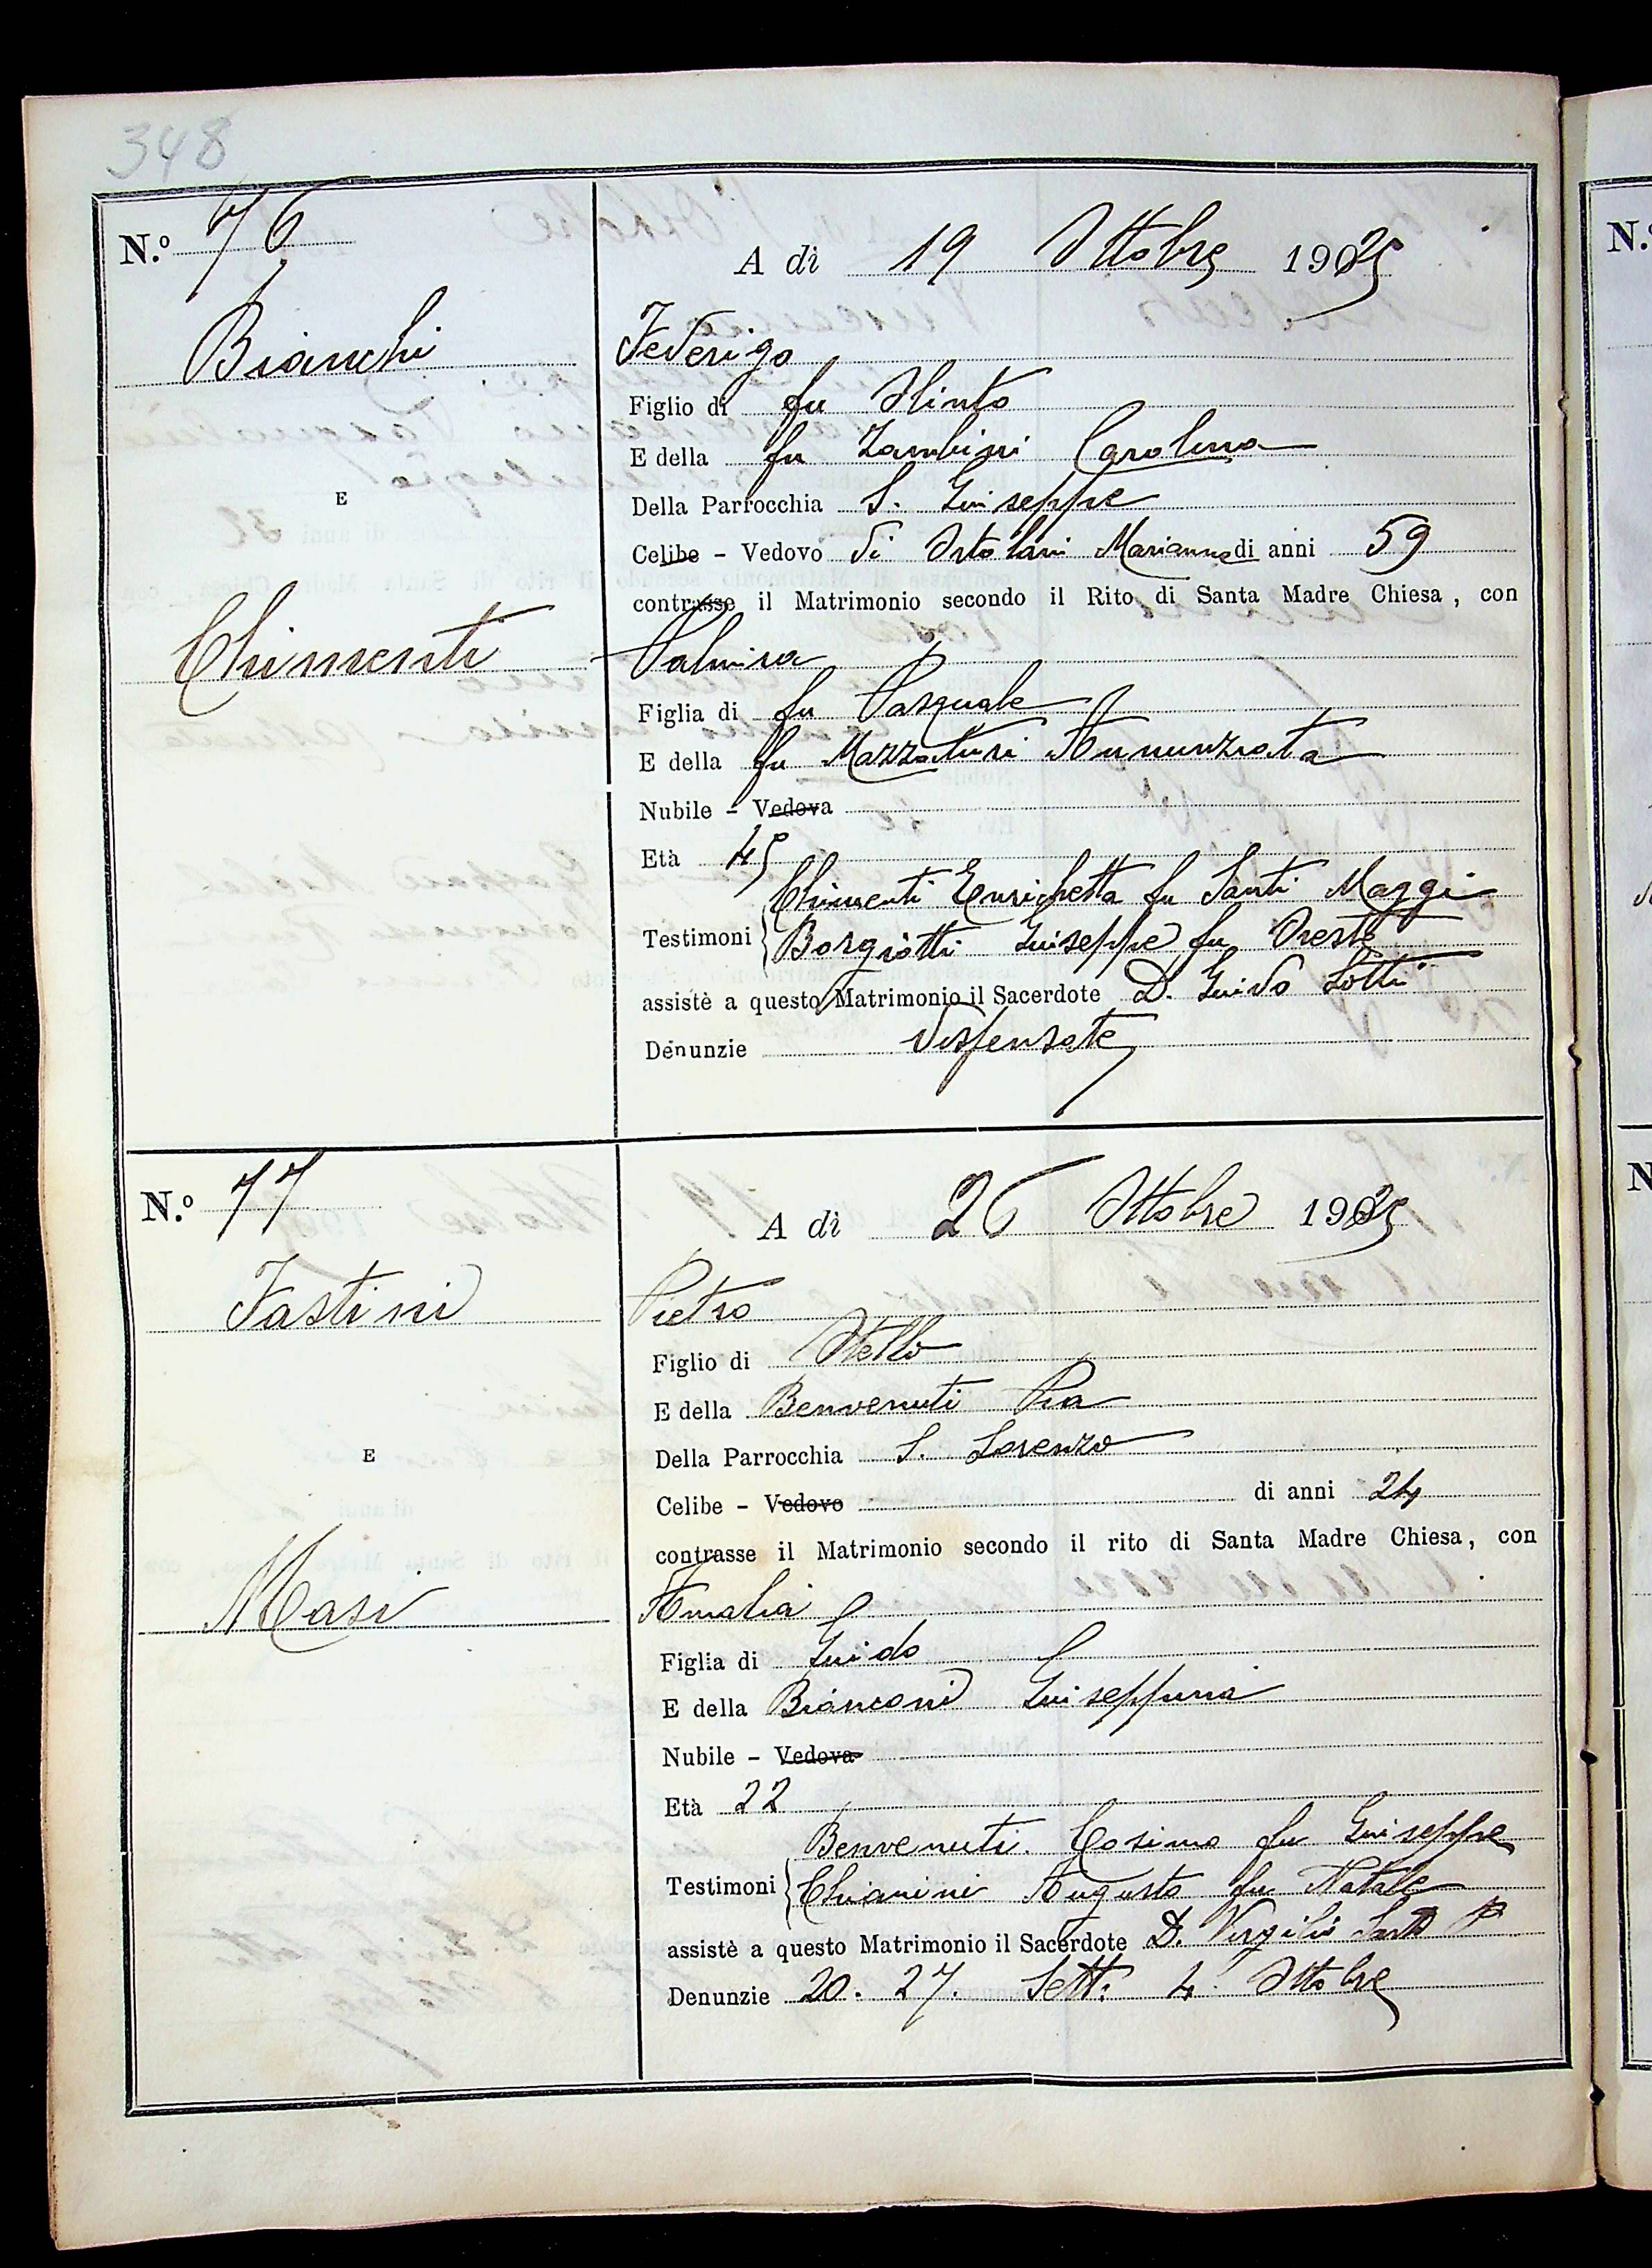 348
N.º 76
A dì 19 Ottobre 1925
Bianchi
Federigo
Figlio di fu Olinto
E della fu Zambini Carolina
E
Della Parrocchia S. Giuseppe
Celibe - Vedovo di Ortolani Marianna di anni 59
contrasse il Matrimonio secondo il Rito di Santa Madre Chiesa, con
Chimenti
Palmira
Figlia di fu Pasquale
E della fu Annunziata
Nubile - Vedova
Età 45
Chimenti Enrichetta fu Santi Maggi
Testimoni Borgiotti Giuseppe fu Oreste
assistè a questo Matrimonio il Sacerdote D. Guido Lotti
Denunzie Dispensate
N.º 77
A dì 26 Ottobre 1925
Fastini
Pietro
Figlio di Otello
E della Benvenuti Pia
E
Della Parrocchia S. Lorenzo
Celibe - Vedovo di anni 24
contrasse il Matrimonio secondo il rito di Santa Madre Chiesa, con
Masi
Amalia
Figlia di Guido
E della Bianconi Giuseppina
Nubile - Vedova
Età 22
Benvenuti Cosimo fu Giuseppe
Testimoni Chianini Augusto fu Natale
assistè a questo Matrimonio il Sacerdote D. Virgilio
Denunzie 20. 27. Sett. 4 Ottobre
N.º
N